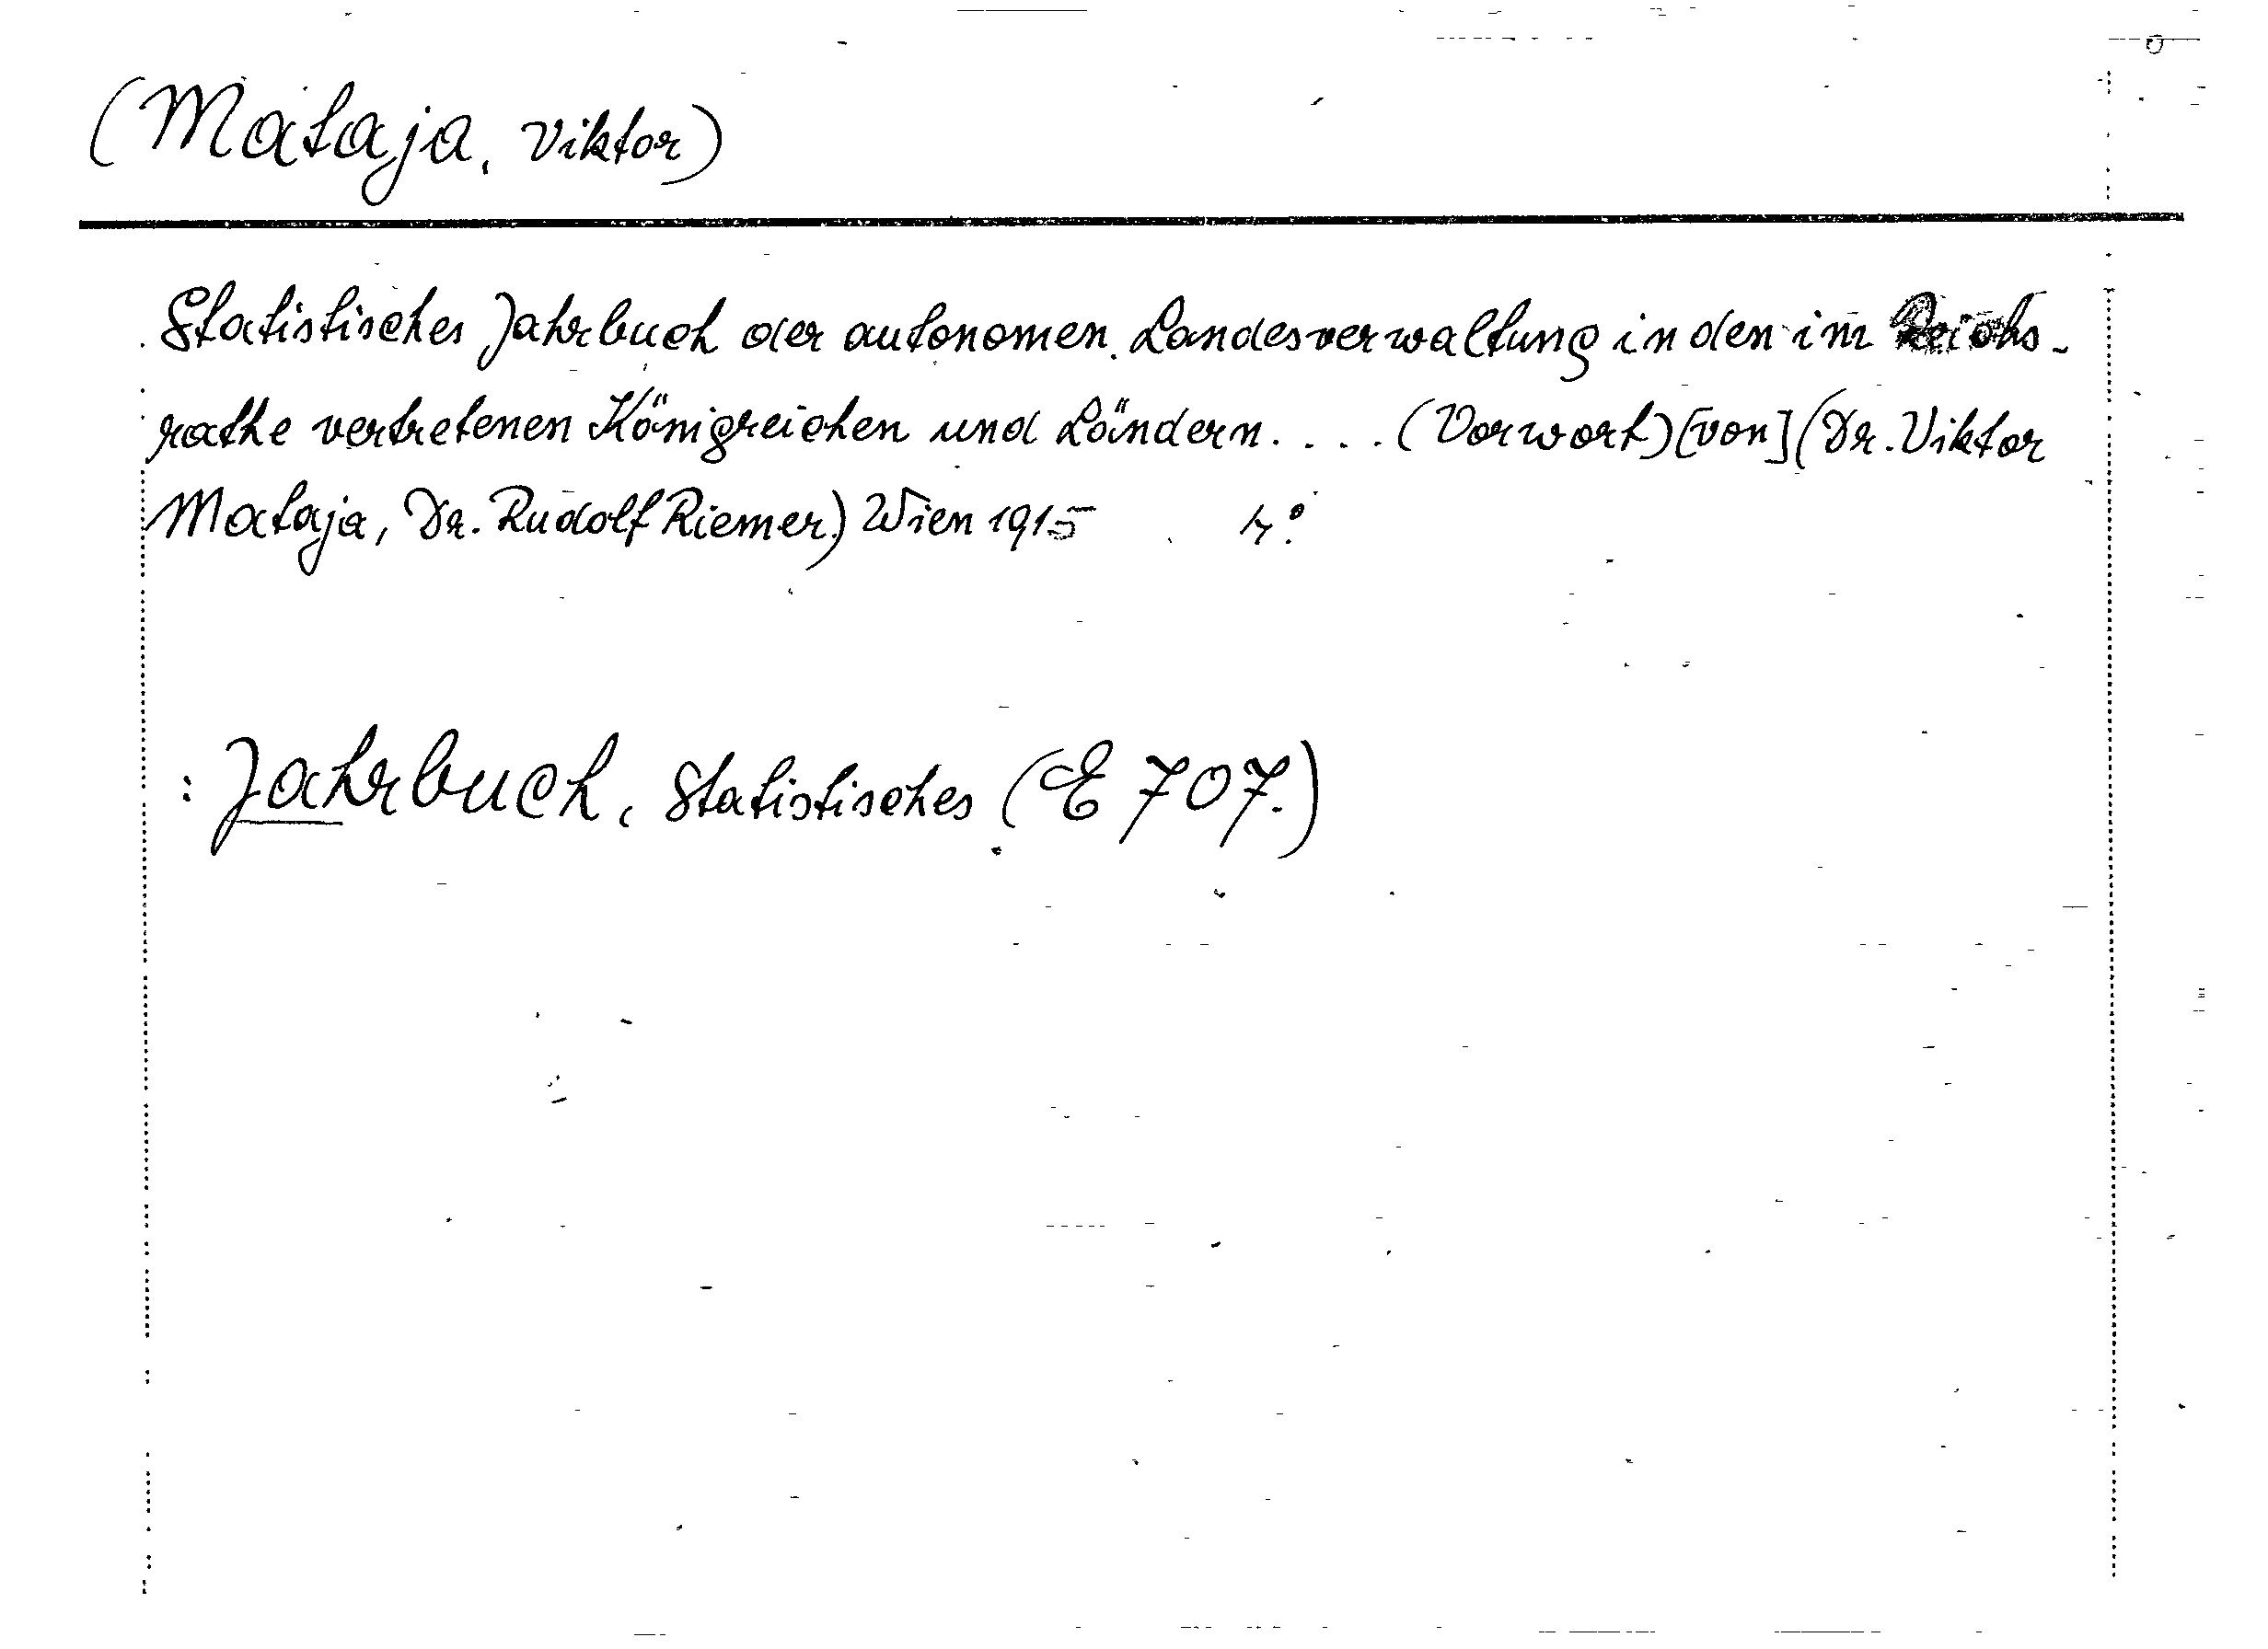 (Mataja, Viktor)
Statistisches Jahrbuch der autonomen Landesverwaltung in den im Reichs-
rathe vertretenen Königreichen und Ländern. . . . (Vorwort) [von] (Dr. Viktor
Mataja, Dr. Rudolf Riemer.) Wien 1915 4°.
: Jahrbuch, Statistisches (E 707.)